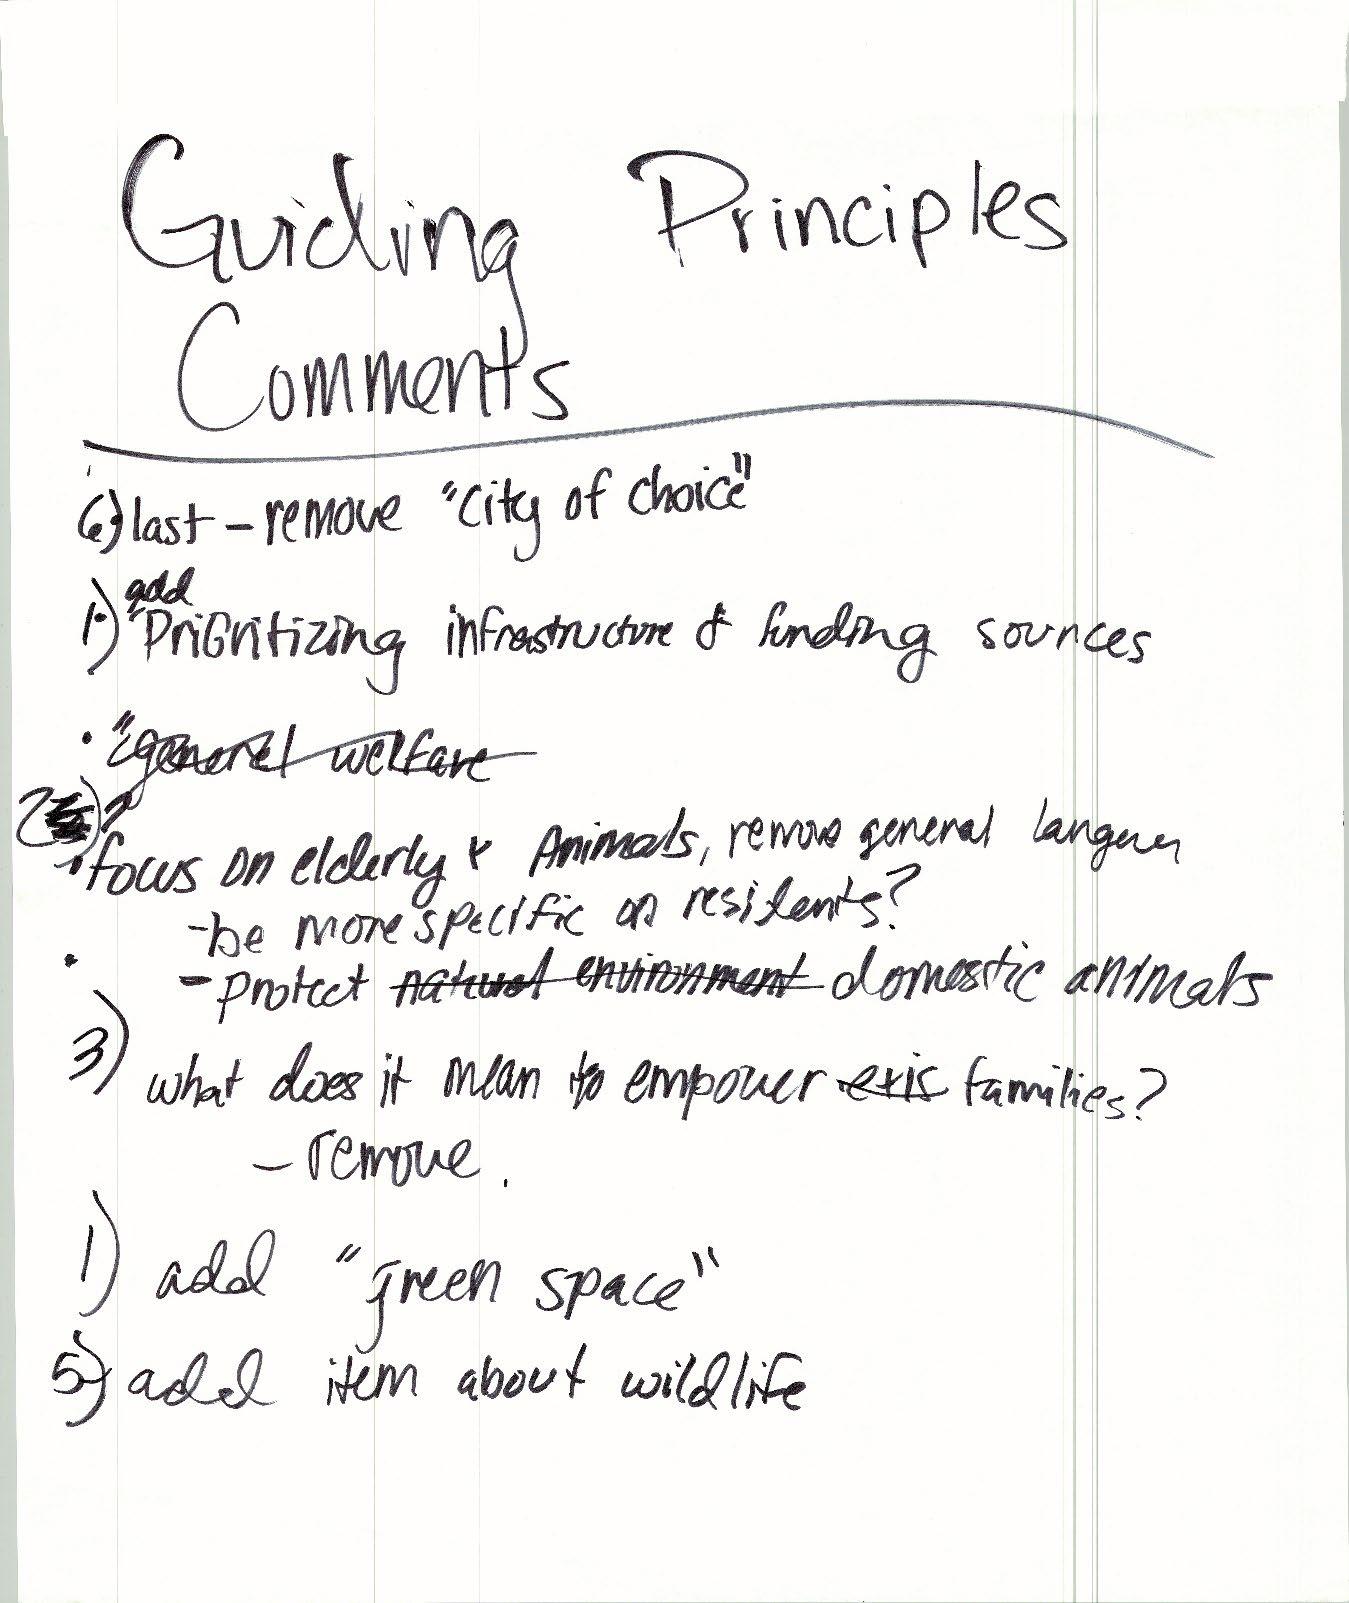 Guiding Principles
Comments
6) last – remove "city of choice"
add
1) "Prioritizing infrastructure & funding sources
• "general welfare
2) ?
• focus on elderly & Animals, remove general
- be more specific on residents?
• - protect natural environment domestic animals
3) what does it mean to empower exis families?
– remove.
1) add "green space"
5) add item about wildlife